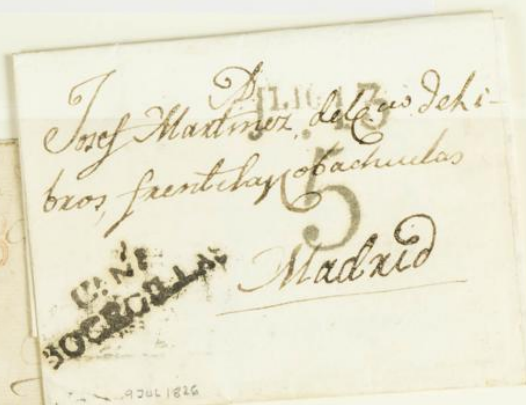 Dn
Josef Martinez, del Co.no de li-
bros, frente las Cobachuelas
5
Madrid
BOCEGUILLAS
9 JUL 1826